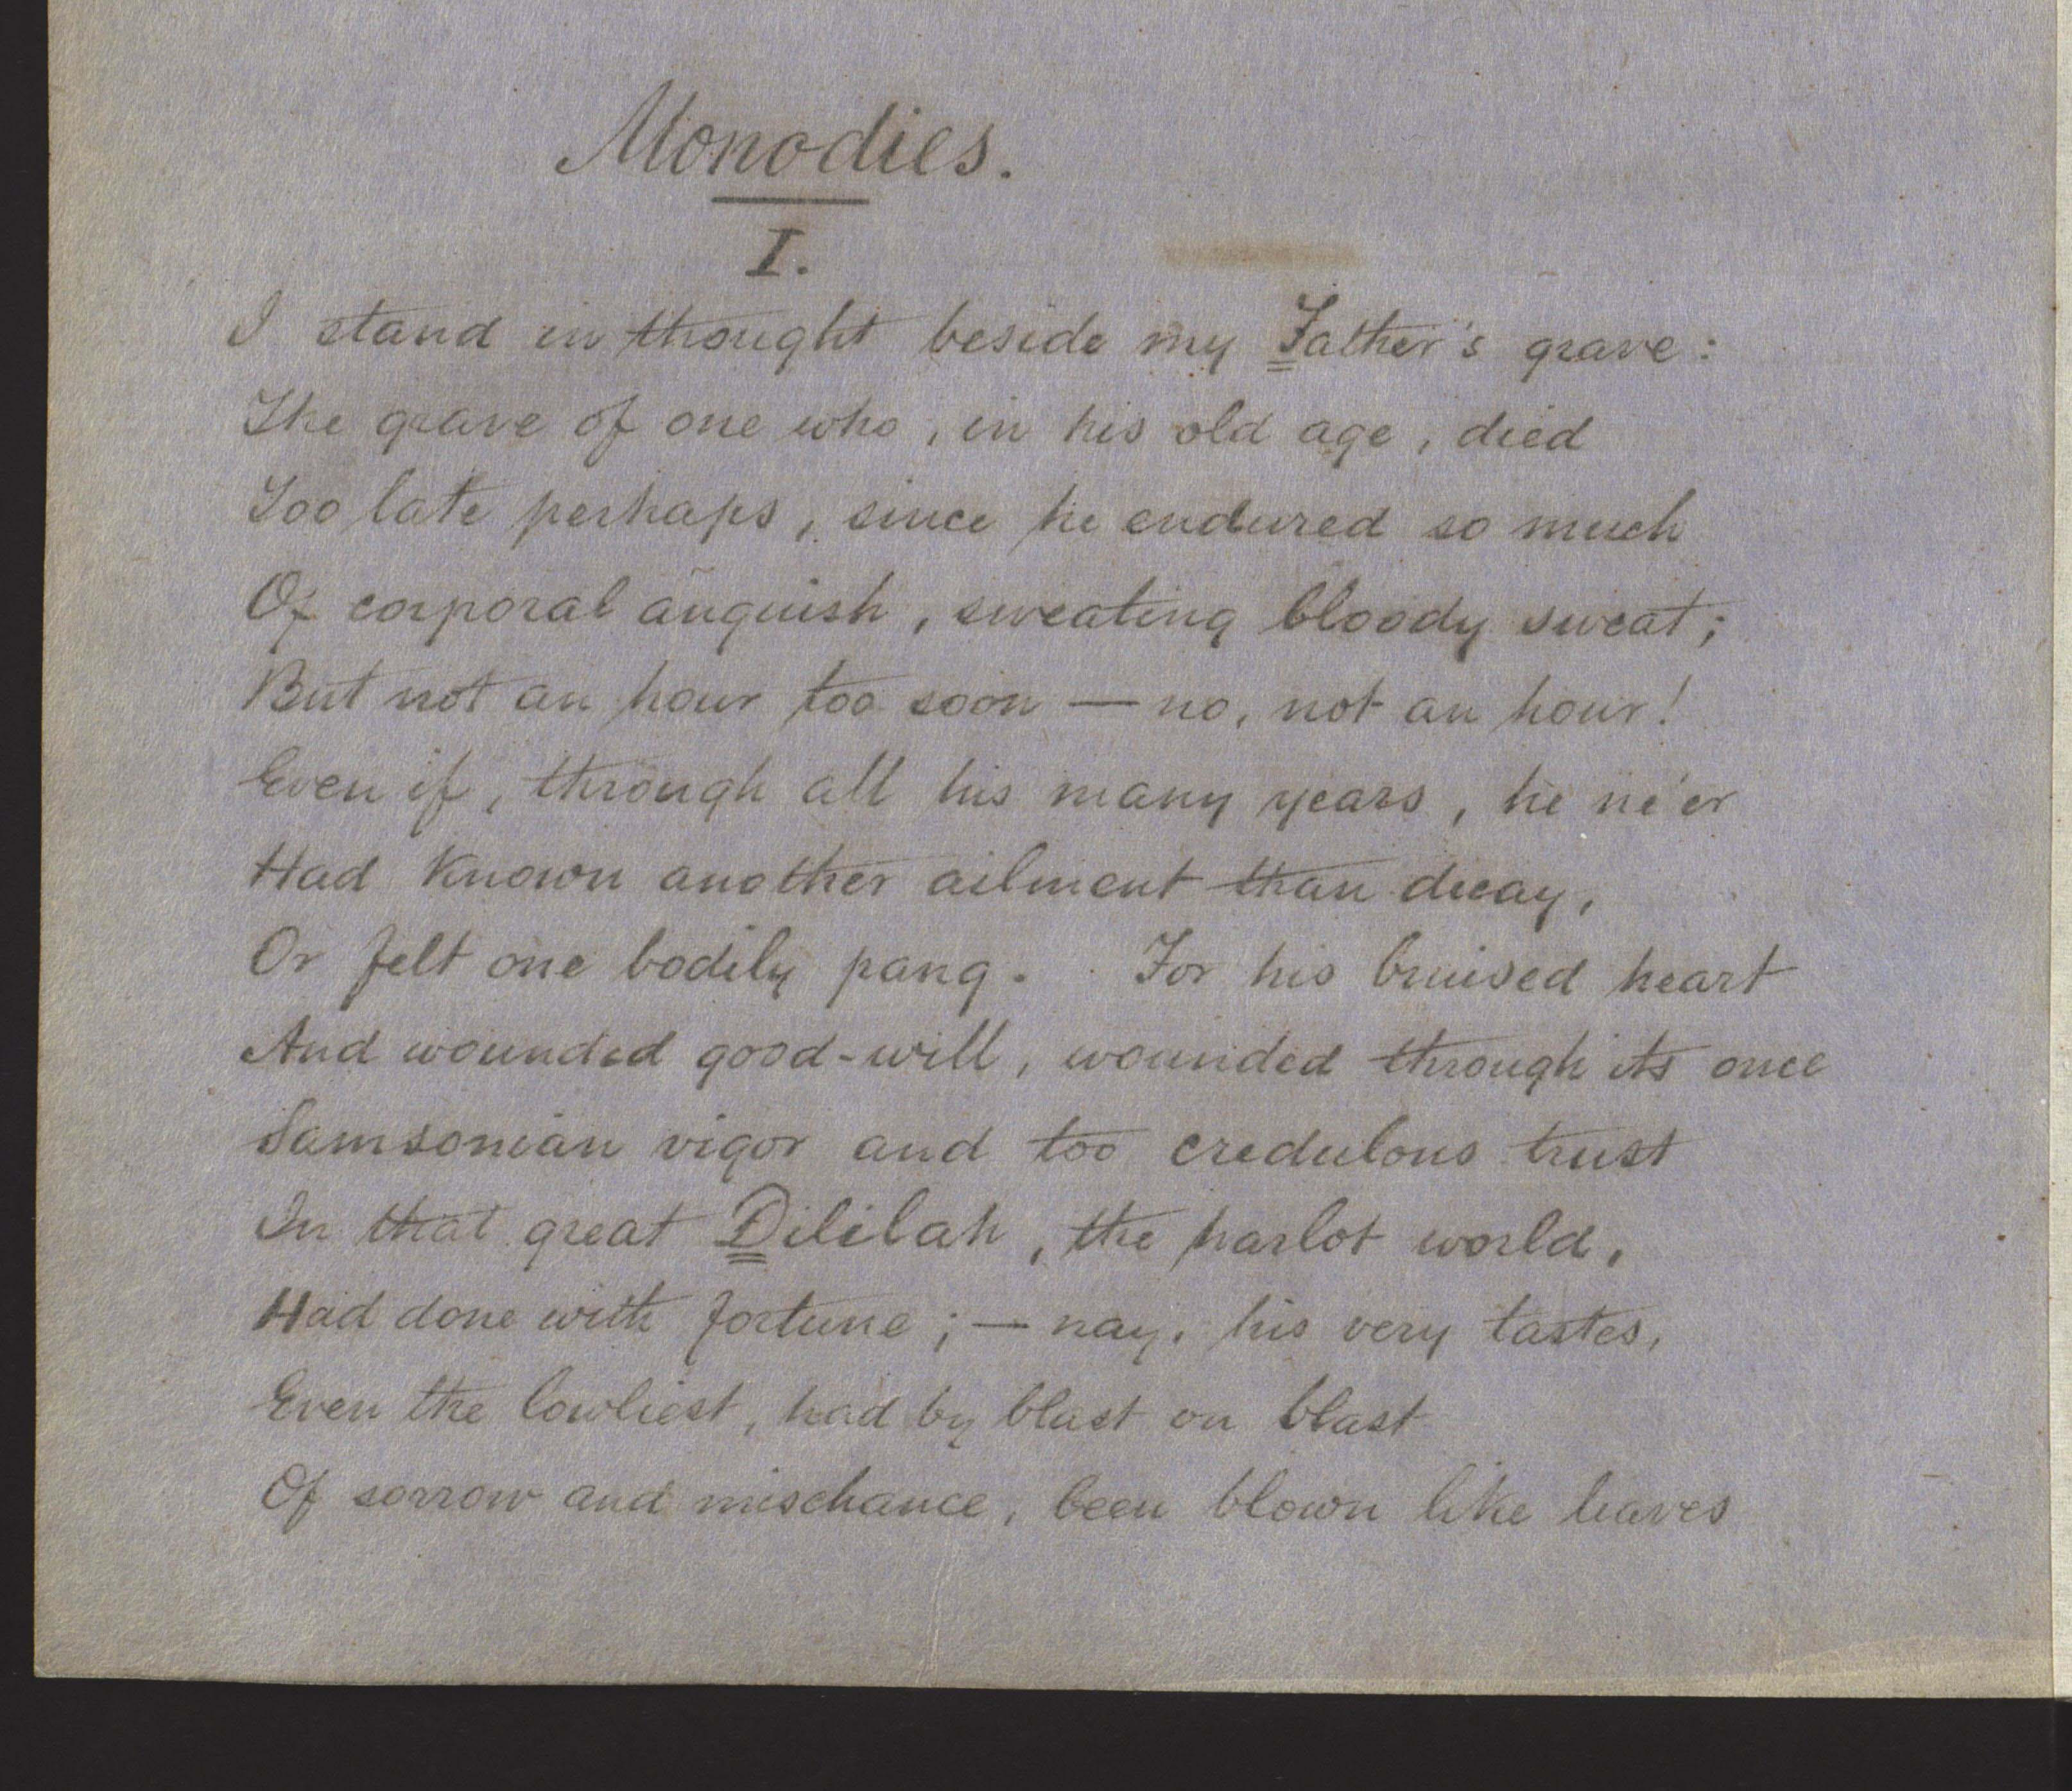 Monodies.
I.
I stand in thought beside my Father's grave:
The grave of one who, in his old age, died
Too late perhaps, since he endured so much
Of corporal anguish, sweating bloody sweat;
But not an hour too soon — no, not an hour!
Even if, through all his many years, he ne'er
Had known another ailment than decay,
Or felt one bodily pang. For his bruised heart
And wounded good-will, wounded through its once
Samsonian vigor and too credulous trust
In that great Dililah, the harlot world,
Had done with fortune; — nay, his very tastes,
Even the lowliest, had by blast on blast
Of sorrow and mischance, been blown like leaves